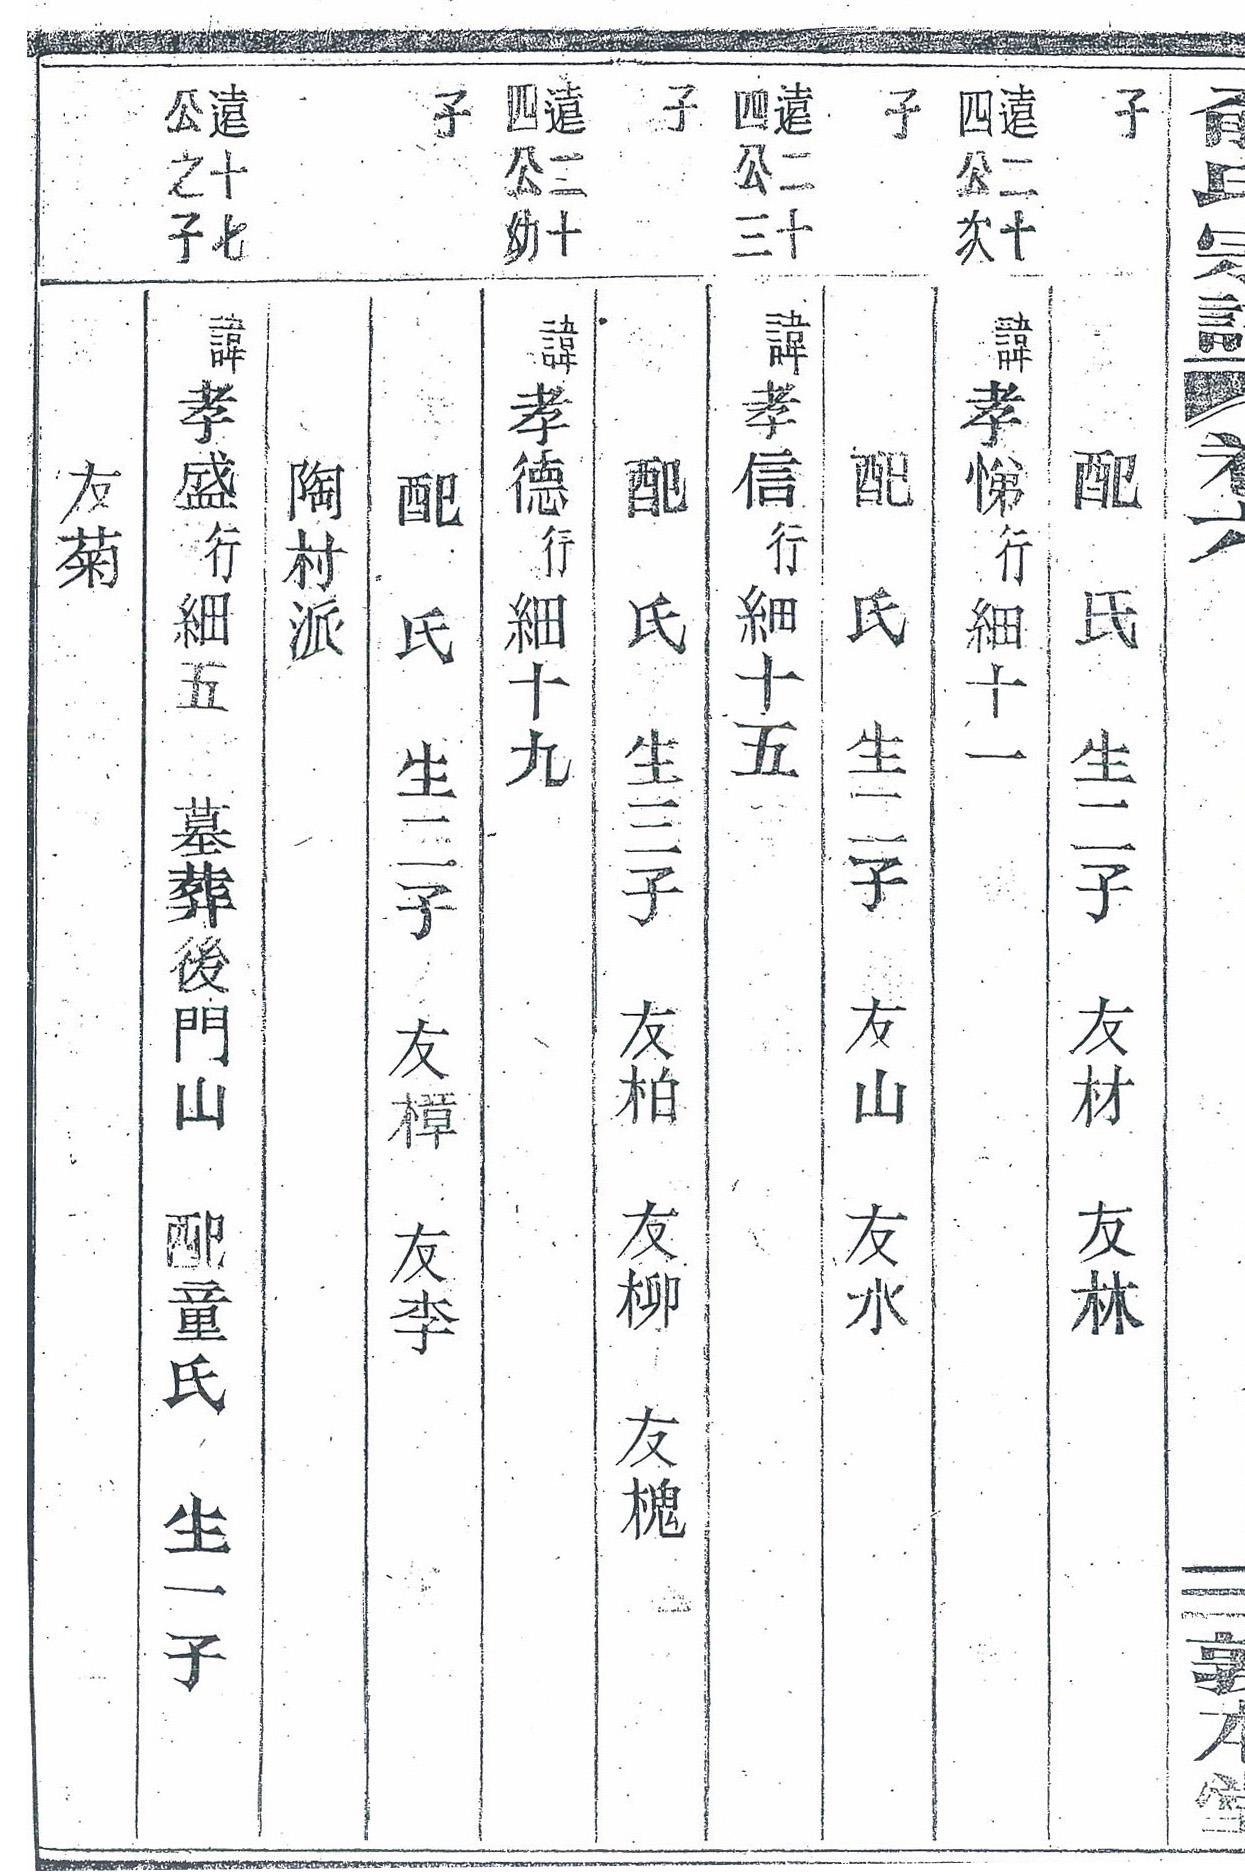 氏宗譜 卷六 敦本堂
子 配 氏 生二子 友材 友林
遠二十四公次 諱孝悌行細十一
子 配 氏 生二子 友山 友水
遠二十四公三 諱孝信行細十五
子 配 氏 生三子 友柏 友柳 友槐
遠二十四公幼 諱孝德行細十九
子 配 氏 生二子 友樟 友李
陶村派
遠十七公之子 諱孝盛行細五 墓葬後門山 配童氏 生一子
友菊